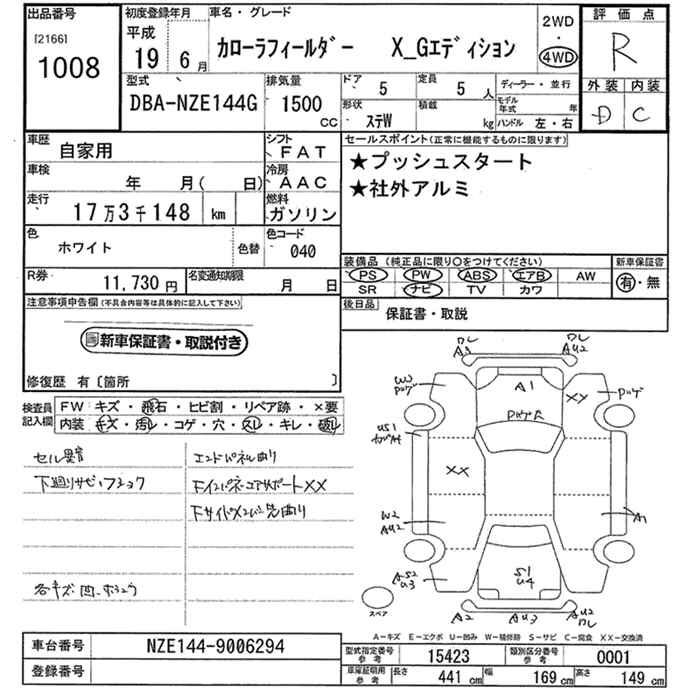 出品番号
[2166]
1008
初度登録年月
平成
19 6月
車名・グレード
カローラフィールダー X_Gエディション
2WD
・
4WD
評価点
R
外装 内装
D C
型式
DBA-NZE144G
排気量
1500
CC
ドア 5
定員 5人
形状 ステW
積載 kg
ディーラー・並行
モデル年式 年
ハンドル 左・右
車歴
自家用
シフト
FAT
車検
年 月( 日)
冷房
AAC
走行
17万3千148 km
燃料
ガソリン
色
ホワイト
色替
色コード
040
R券 11,730円
名変通知期限 月 日
セールスポイント(正常に機能するものに限ります)
★プッシュスタート
★社外アルミ
装備品(純正品に限り○をつけてください)
PS PW ABS エアB AW
SR ナビ TV カワ
新車保証書
有・無
後日品
保証書・取説
注意事項申告欄(不具合内容等は具体的に記入して下さい)
新車保証書・取説付き
修復歴 有〔箇所 〕
検査員記入欄
FW キズ・飛石・ヒビ割・リペア跡・×要
内装 キズ・汚レ・コゲ・穴・スレ・キレ・破レ
エンドパネル曲り
A1
XX
XX
W2
AU2
A1
S1
U4
A2
AU3
AU2
スペア
A−キズ E−エクボ U−凹み W−補修跡 S−サビ C−腐食 XX−交換済
車台番号 NZE144-9006294
登録番号
型式指定番号 参考 15423
類別区分番号 参考 0001
車庫証明用 参考 長さ 441 cm 幅 169 cm 高さ 149 cm